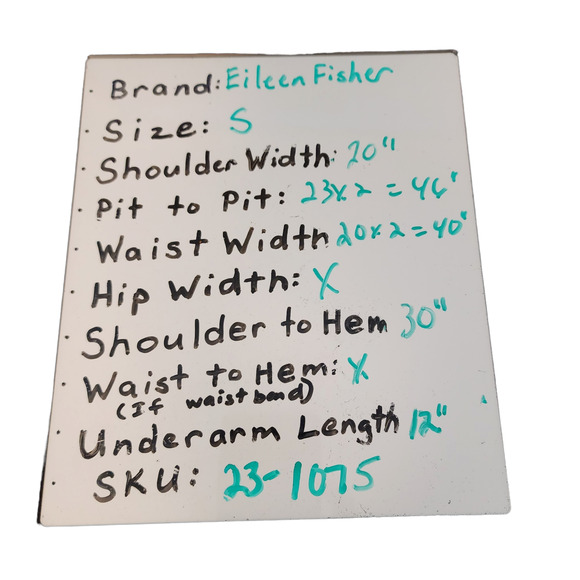 · Brand: Eileen Fisher
· Size: S
· Shoulder Width: 20"
· Pit to Pit: 23x2 = 46"
· Waist Width 20x2 = 40"
· Hip Width: X
· Shoulder to Hem 30"
· Waist to Hem: X
(If waistband)
· Underarm Length 12"
· SKU: 23-1075